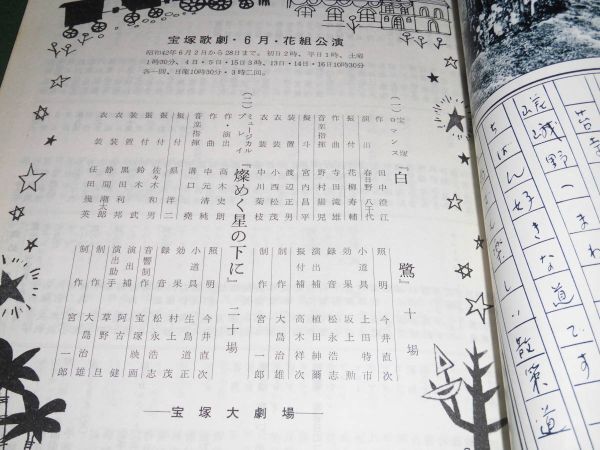 宝塚歌劇・6月・花組公演
昭和42年6月2日から28日まで。初日2時、平日1時、土曜
1時30分、4日・5日・15日3時、13日・14日・16日10時30分
各一回、日曜10時30分・3時二回。
(一) 宝塚ロマンス『白鷺』 十場
作 田中澄江
演出 春日野八千代
振付 花柳寿輔
作曲 寺田滝雄
音楽指揮 野村陽児
振斗 宮内昌平
装置 渡辺正男
小道具 小西松茂
衣装 中川菊枝
照明 今井直次
小道具 上田特市
効果 坂上勲
録音 松永浩志
演出補 植田紳爾
振付補 高木祥
制作 大島治雄
制作 宮一郎
(二) ミュージカル・プレイ『燦めく星の下に』 二十場
作・演出 高木史朗
作曲 中元清純
音楽指揮 溝口堯
振付 県洋二
振付 佐々木和男
振付 鈴木武
装置 黒田利邦
衣装 静間潮太郎
衣装 任田幾英
照明 今井直次
小道具 生島道正
効果 村上茂
録音 松永浩志
音響制作 宝塚映画
演出補 阿古健
演出助手 草野旦
制作 大島治雄
制作 宮一郎
―宝塚大劇場―
嵯峨野へまわ
ちばん好きな道です
楽しい散策道